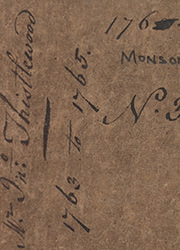 Mr. Jno. Thistlewood
1763 to 1765.
176
MONSO
No. 3